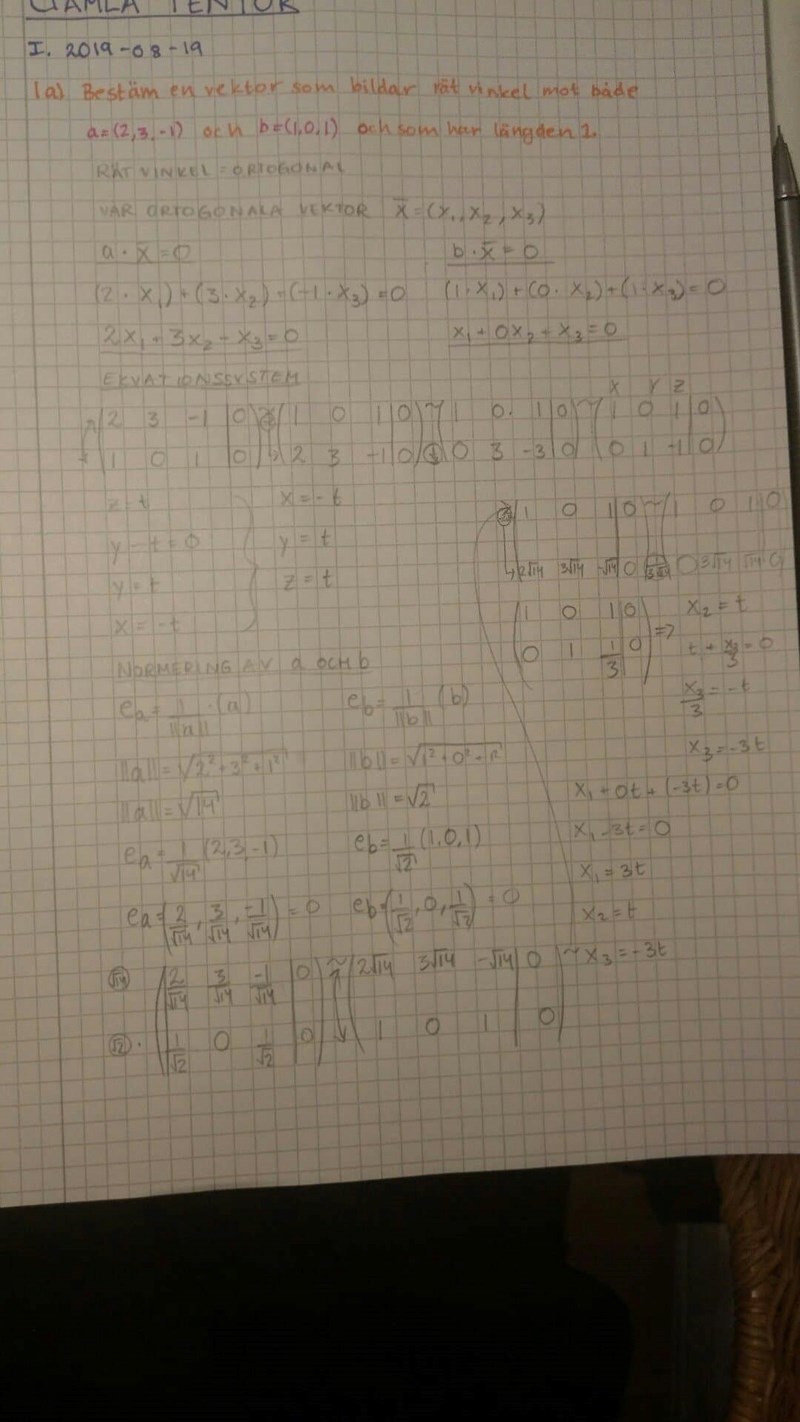 GAMLA TENTOR
I. 2019-08-19
1a) Bestäm en vektor som bildar rät vinkel mot både
a=(2,3,-1) och b=(1,0,1) och som har längden 1.
RÄT VINKEL = ORTOGONAL
VÅR ORTOGONALA VEKTOR x̄ = (x₁, x₂, x₃)
a · x̄ = 0 b · x̄ = 0
(2 · x₁) + (3 · x₂) + (-1 · x₃) = 0 (1 · x₁) + (0 · x₂) + (1 · x₃) = 0
2x₁ + 3x₂ - x₃ = 0 x₁ + 0x₂ + x₃ = 0
EKVATIONSSYSTEM
x y z
2 3 -1 | 0 ~ 1 0 1 | 0 ~ 1 0 1 | 0 ~ 1 0 1 | 0
1 0 1 | 0 2 3 -1 | 0 0 3 -3 | 0 0 1 -1 | 0
z = t x = -t
y - t = 0 y = t
y = t z = t
x = -t
1 0 1 | 0 ~ 1 0 1 | 0
2√14 3√14 -√14 | 0 0 3√14 √14 0
1 0 1 | 0
0 1 1/3 | 0 =>
x₂ = t
t + x₃/3 = 0
x₃/3 = -t
x₃ = -3t
x₁ + 0t + (-3t) = 0
x₁ - 3t = 0
x₁ = 3t
x₂ = t
x₃ = -3t
NORMERING AV a OCH b
eₐ = 1/||a|| · (a) e_b = 1/||b|| (b)
||a|| = √2² + 3² + 1² ||b|| = √1² + 0² + 1²
||a|| = √14 ||b|| = √2
eₐ = 1/√14 (2, 3, -1) e_b = 1/√2 (1, 0, 1)
eₐ = (2/√14, 3/√14, -1/√14) = 0 e_b = (1/√2, 0, 1/√2) = 0
√14 2/√14 3/√14 -1/√14 | 0 ~ 2√14 3√14 -√14 | 0 ~
√2 · 1/√2 0 1/√2 | 0 1 0 1 | 0